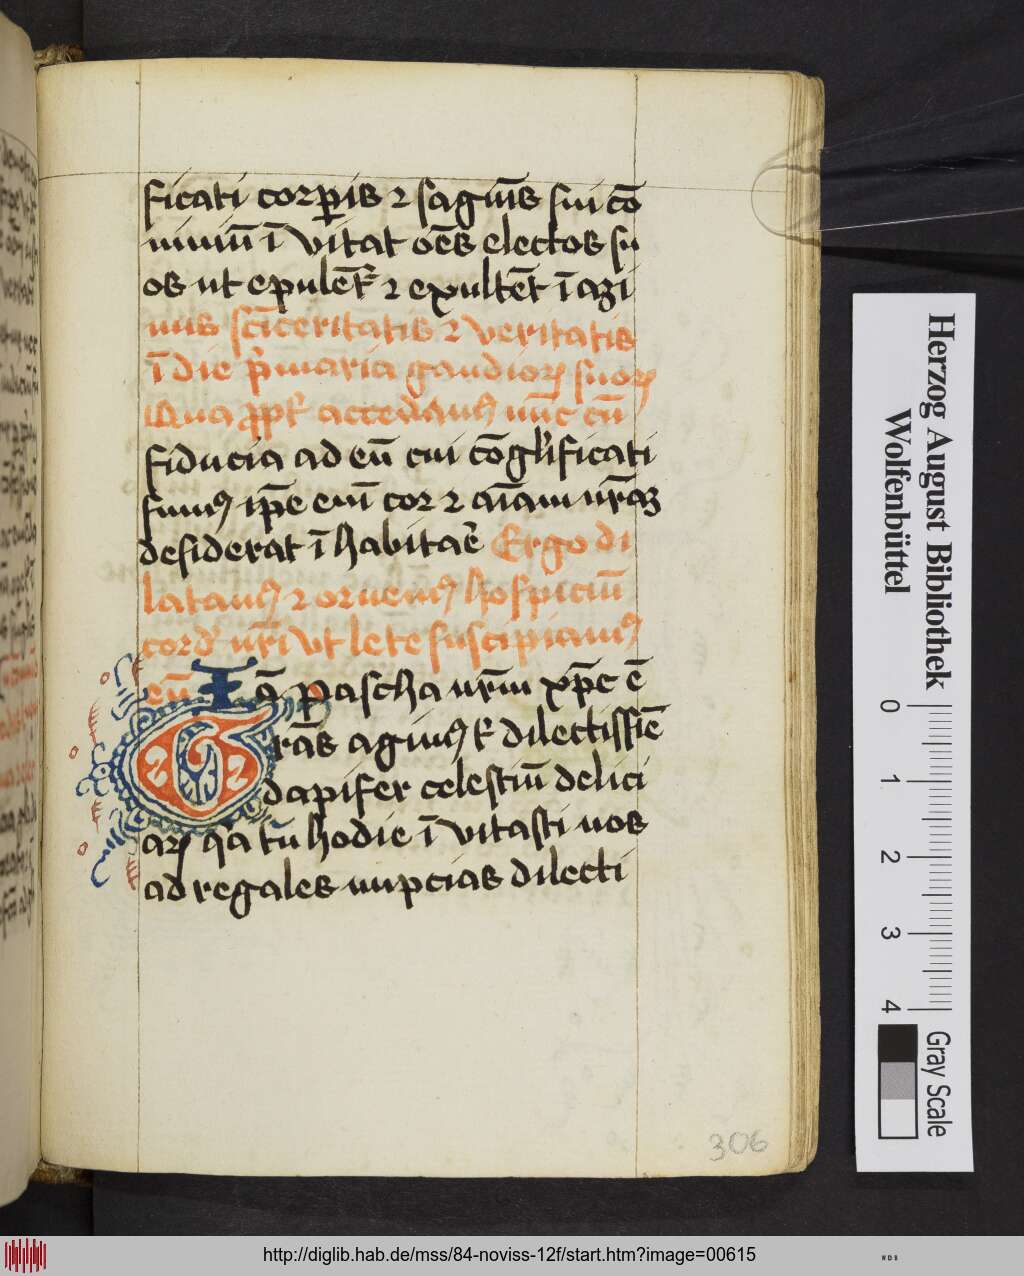 ficati corꝑis ⁊ sagnīs sui cō
iuiuiū ī vitat oēs electos su
os ut epulēt᷑ ⁊ exultēt ī azi
mis scīceritatis ⁊ veritatis
ī die p̄maria gaudioꝝ suoꝝ
Qua ꝓpt᷑ accedamꝰ nūc cū
fiducia ad eū cui cōgl̄ificati
sumꝰ ip̄e enī cor ⁊ aīam nr̄aꝫ
desiderat ī habitar̄ Ergo di
latamꝰ ⁊ ornemꝰ hospiciū
cord᷑ nr̄i vt lete suscipiamꝰ
eū Iā pascha nr̄m xp̄c ē
Grās agimꝰ t᷑ dilectissīe
dapifer celestiū delici
aꝝ qa tū hodie ī vitasti nos
ad regales nupcias dilecti
306
Herzog August Bibliothek
Wolfenbüttel
0 1 2 3 4
Gray Scale
http://diglib.hab.de/mss/84-noviss-12f/start.htm?image=00615